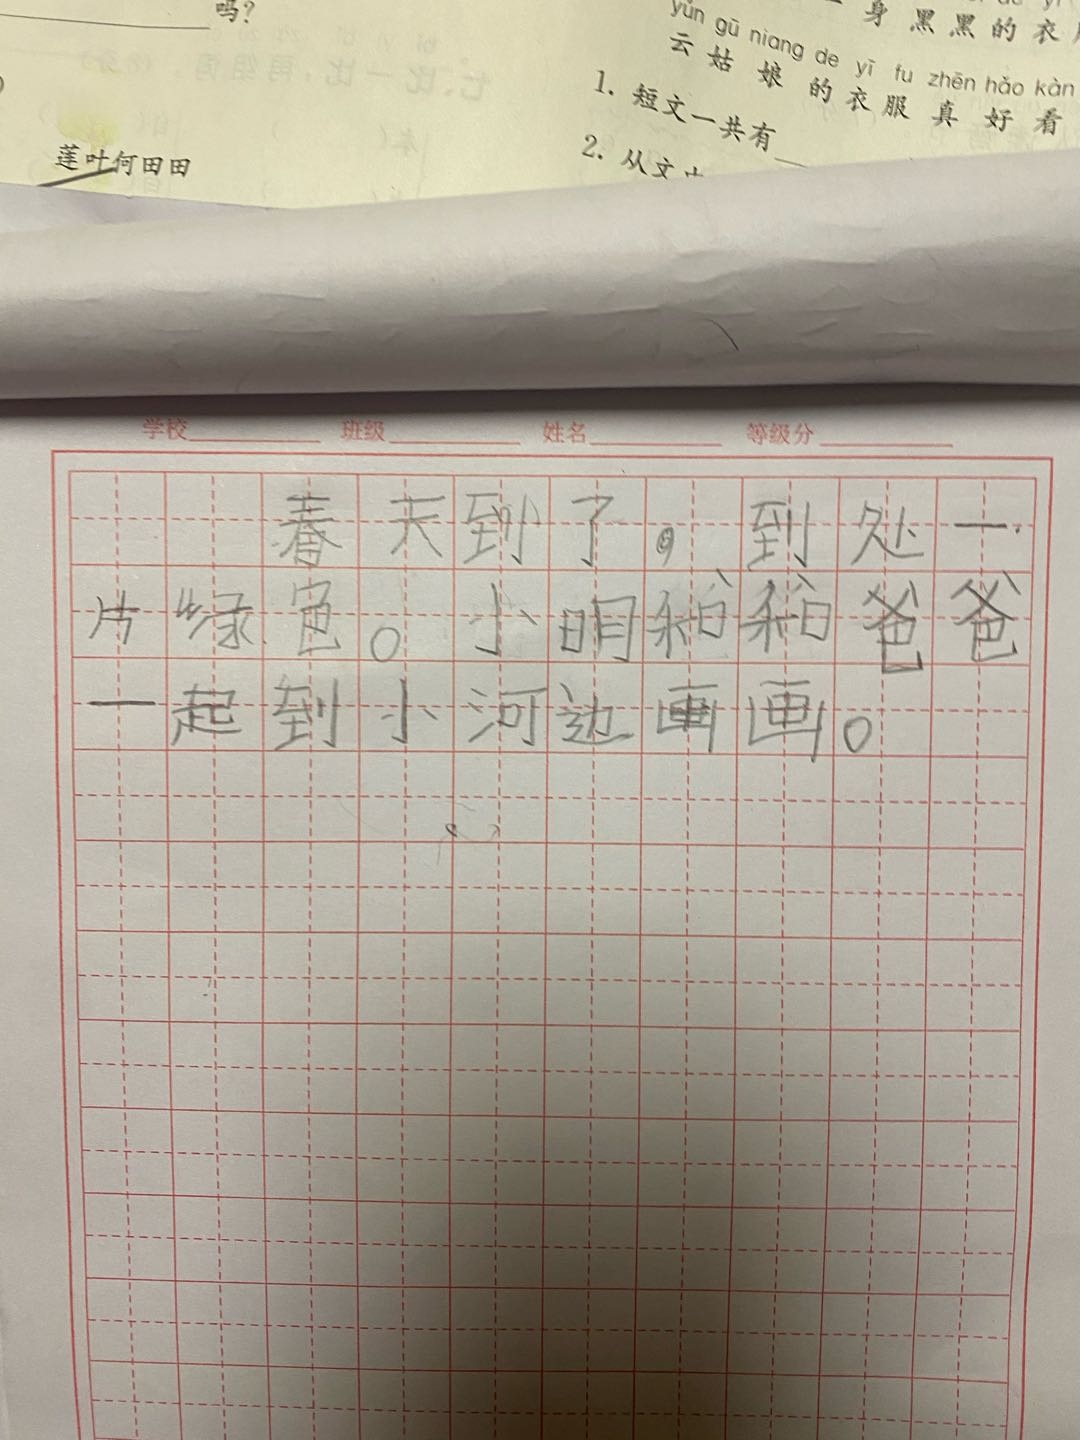 吗?
莲叶何田田
身黑黑的衣
yún gū niang de yī fu zhēn hǎo kàn
云姑娘的衣服真好看
1. 短文一共有
2. 从文
学校 班级 姓名 等级分
春天到了，到处一
片绿色。小明和和爸爸
一起到小河边画画。